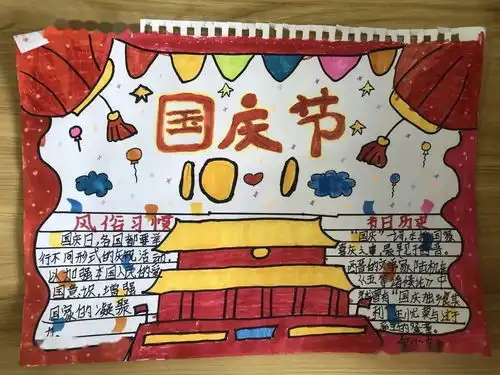 国庆节
10 1
风俗习惯
国庆日,各国都要举
行不同形式的庆祝活动,
以加强本国人民的爱
国意识,增强
国家的凝聚
力。
节日历史
国庆一词,
喜庆之事,最早见
西晋的文学家陆机在
《五等诸侯论》中
国庆独